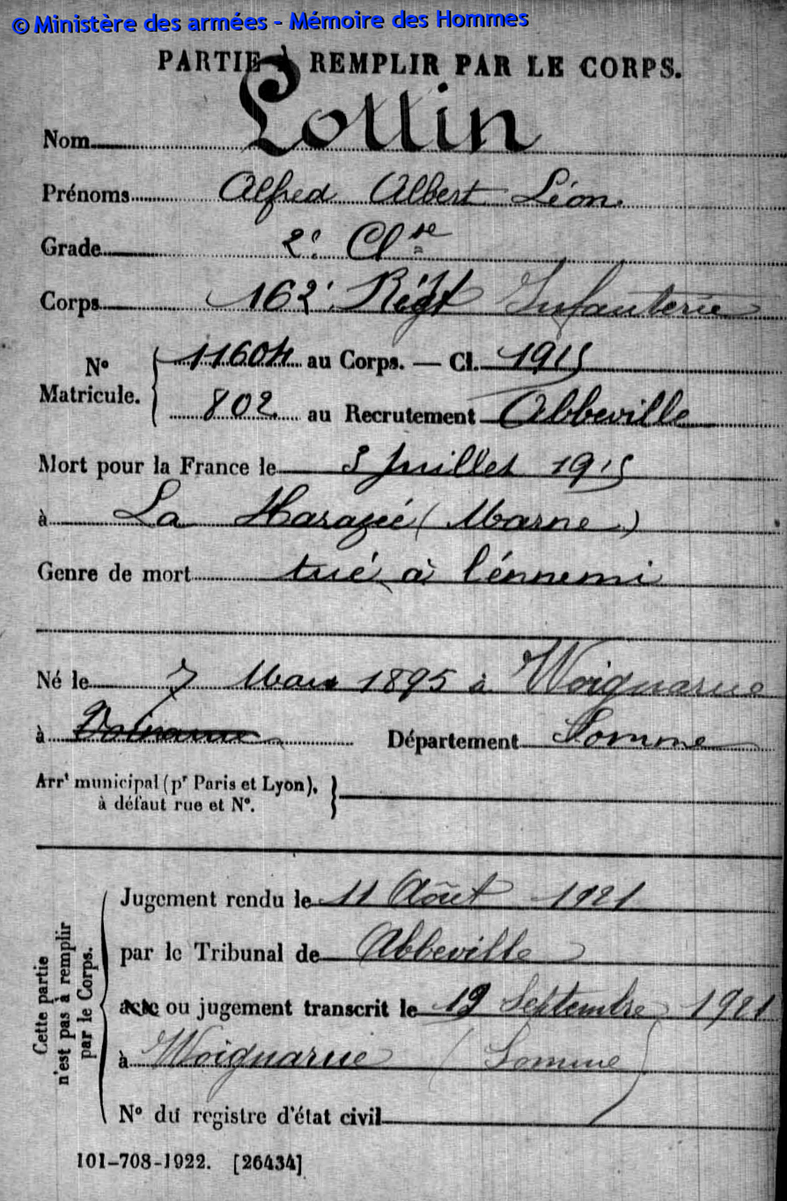 © Ministère des armées - Mémoire des Hommes
PARTIE À REMPLIR PAR LE CORPS.
Nom Lottin
Prénoms Alfred Albert Léon
Grade 2e Clse
Corps 162e Régt Infanterie
N° Matricule. 11604 au Corps. — Cl. 1915
802 au Recrutement Abbeville
Mort pour la France le 3 Juillet 1915
à La Harazée (Marne)
Genre de mort tué à l'énnemi
Né le 7 Mars 1895 à Woignarue
à Département Somme
Arrt municipal (pr Paris et Lyon),
à défaut rue et N°.
Cette partie
n'est pas à remplir
par le Corps.
Jugement rendu le 11 Août 1921
par le Tribunal de Abbeville
acte ou jugement transcrit le 12 Septembre 1921
à Woignarue (Somme)
N° du registre d'état civil
101-708-1922. [26434]